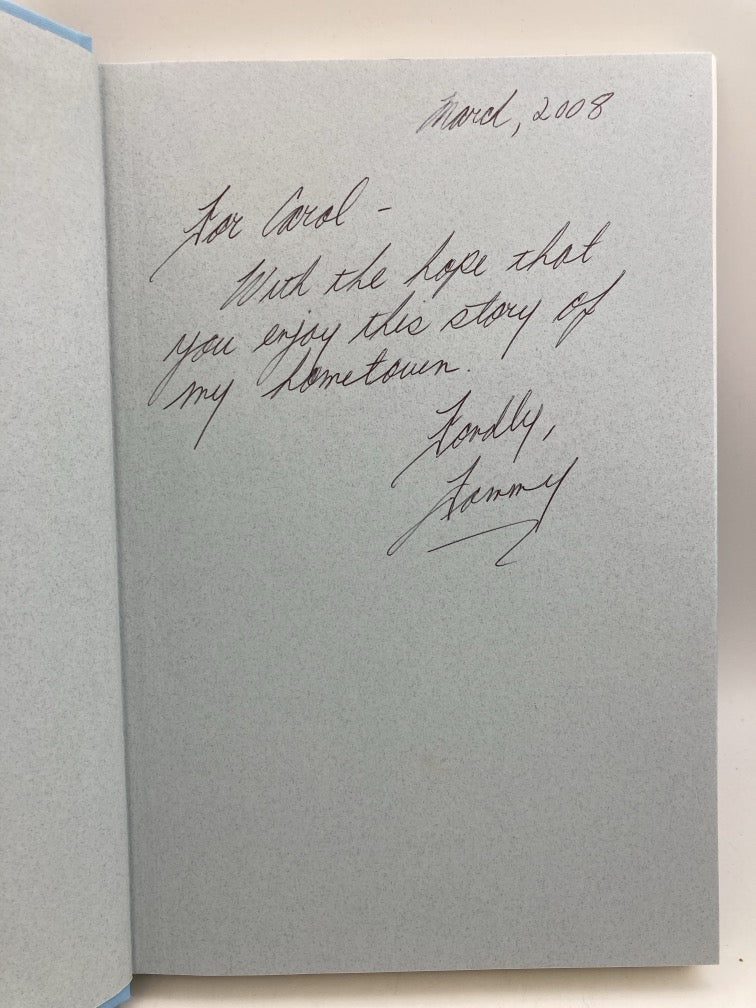 March, 2008
For Carol -
With the hope that
you enjoy this story of
my hometown.
Fondly,
Tommy